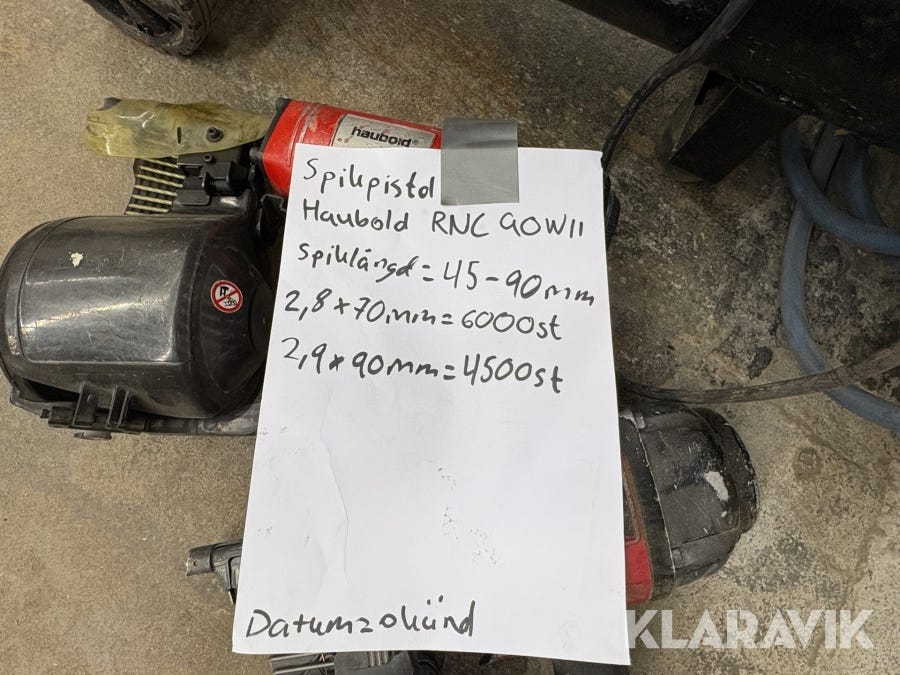 haubold
Spikpistol
Haubold RNC 90WII
Spiklängd = 45-90mm
2,8x70mm=6000st
2,9x90mm=4500st
Datum=okänd
KLARAVIK